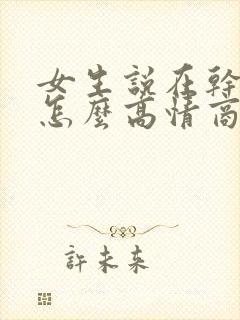 女生説在幹
怎麼高情商
許未來